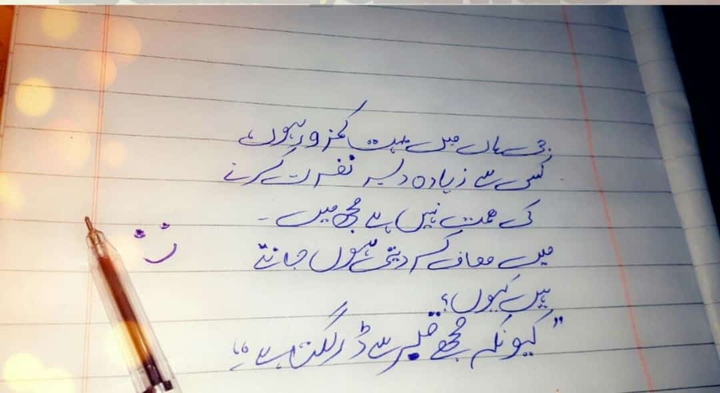 جی ہاں میں بہت کمزور ہوں،
کسی سے زیادہ دیر نفرت کرنے
کی ہمت نہیں ہے مجھ میں۔
میں معاف کر دیتی ہوں جانتے
ہیں کیوں؟
"کیونکہ مجھے قبر سے ڈر لگتا ہے"